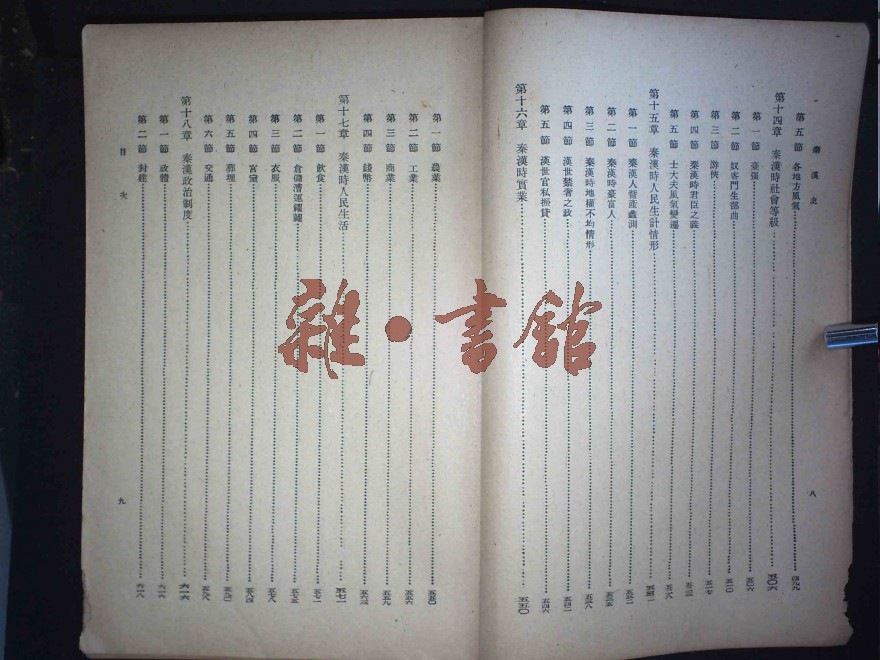 秦漢史
第五節 各地方風氣 四九九
第十四章 秦漢時社會等級 五〇六
第一節 豪强 五〇六
第二節 奴客門生部曲 五一〇
第三節 游俠 五一七
第四節 秦漢時君臣之義
第五節 士大夫風氣變遷 五二八
第十五章 秦漢時人民生計情形
第一節 秦漢人訾產蠡測
第二節 秦漢時豪富人
第三節 秦漢時地權不均情形 五三八
第四節 漢世禁奢之政 五四二
第五節 漢世官私振貸 五四六
第十六章 秦漢時實業 五五〇
八
第一節 農業 五五〇
第二節 工業 五五六
第三節 商業 五五九
第四節 錢幣 五六三
第十七章 秦漢時人民生活 五七一
第一節 飲食 五七一
第二節 倉儲漕運糴糶 五七五
第三節 衣服 五七八
第四節 宮室 五八四
第五節 葬埋
第六節 交通
第十八章 秦漢政治制度 六一六
第一節 政體 六一六
第二節 封建 六一八
目次
九
雜·書館